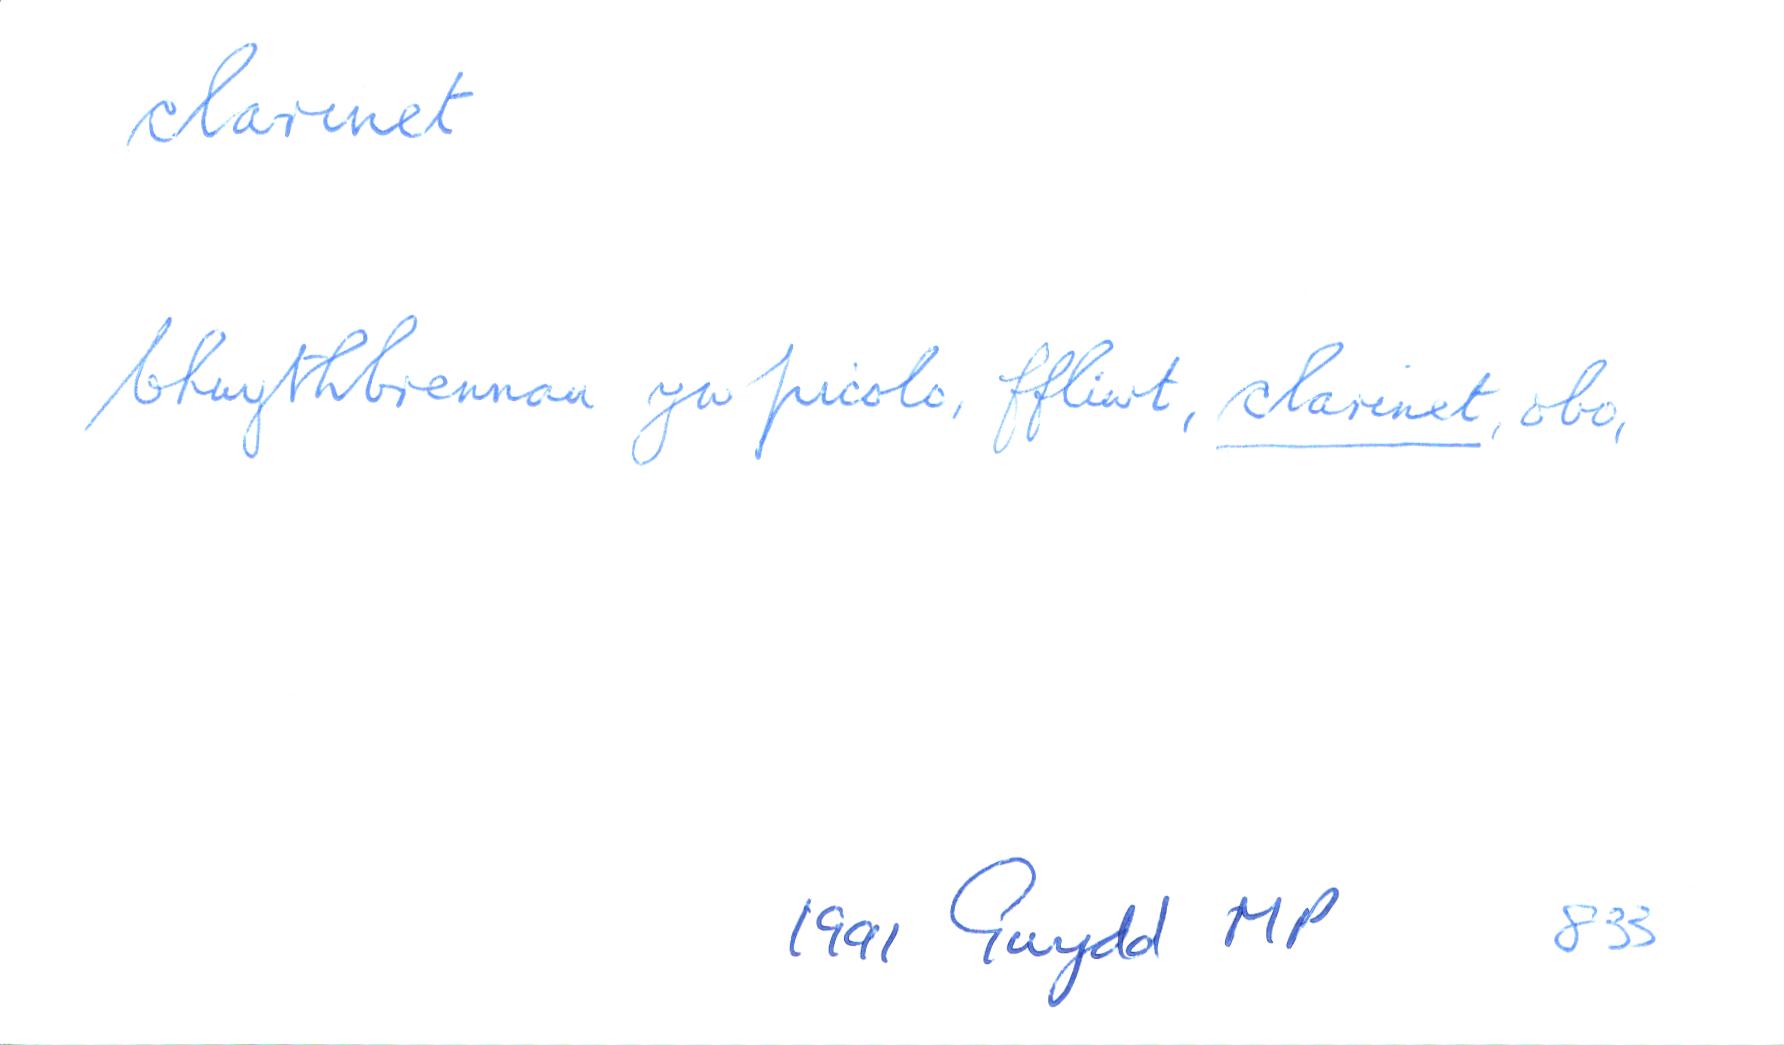 clarinet
bhwythbrennau yw picolo, ffliwt, clarinet, obo,
1991 Gwydd MP 833